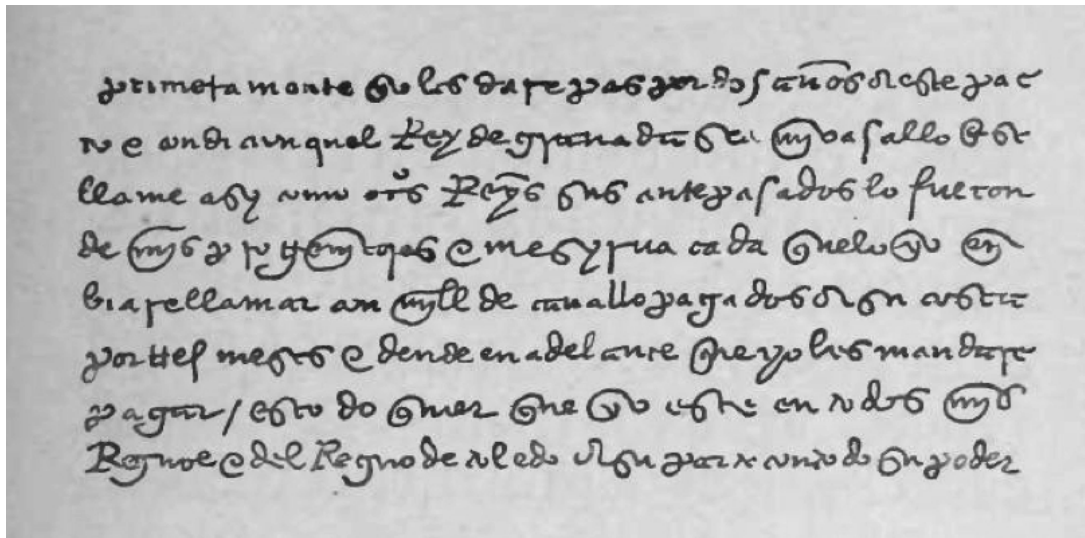 primeramente q̃ yo les dare pas por dos años deste pac
to e condi con quel Rey de granada sea my vasallo e se
llame asy como otros Reyes sus antepasados lo fueron
de mys progenitores e me syrua cada que lo yo en
biare llamar con myll de cauallo pagados de su costa
por tres meses e dende en adelante que yo les mandare
pagar / esto do quier que yo este en todos mys
Regnos e del Regno de toledo de su parte con todo su poder